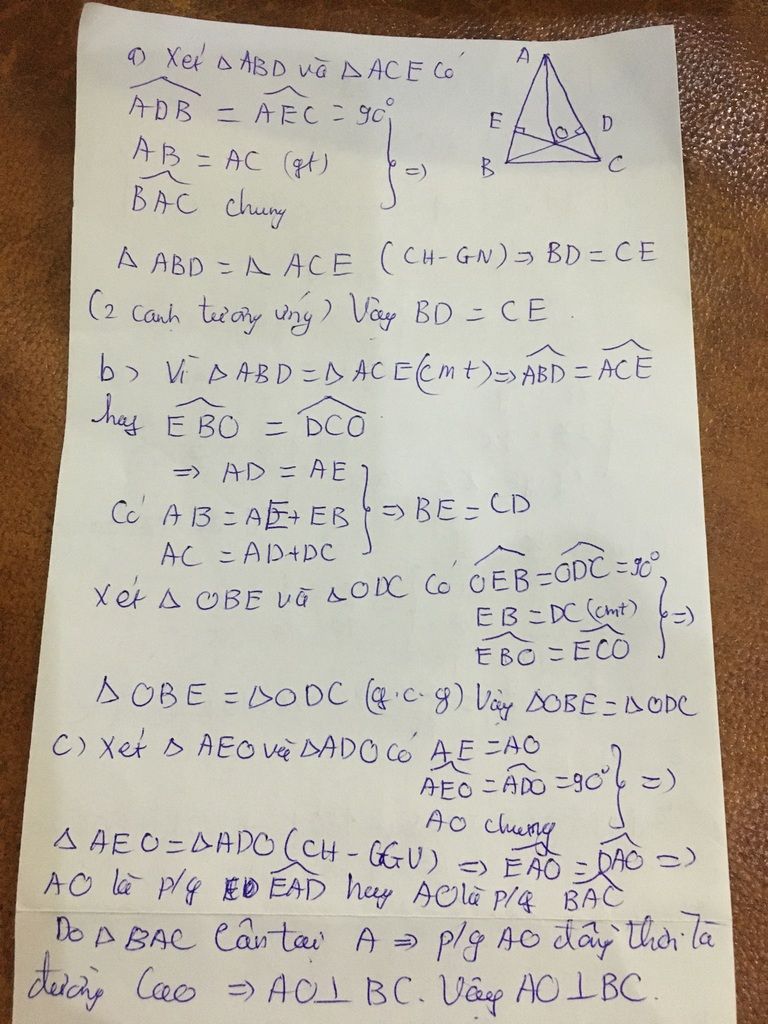 a) Xét △ ABD và △ ACE có
A
E
O
D
B
C
ADB = AEC = 90°
AB = AC (gt)
BAC chung
} =>
△ ABD = △ ACE (CH-GN) => BD = CE
(2 cạnh tương ứng) Vậy BD = CE.
b) Vì △ ABD = △ ACE (cmt) => ABD = ACE
hay EBO = DCO
=> AD = AE
Có AB = AE + EB } => BE = CD
AC = AD + DC
Xét △ OBE và △ ODC có OEB = ODC = 90°
EB = DC (cmt) } =>
EBO = ECO
△ OBE = △ ODC (g.c.g) Vậy △OBE = △ODC
c) Xét △ AEO và △ADO có AE = AO
AEO = ADO = 90° } =>
AO chung
△ AEO = △ADO (CH- => EAO = DAO =>
AO là p/g EAD hay AO là p/g BAC
Do △ BAC cân tại A => p/g AO đồng thời là
đường cao => AO ⊥ BC. Vậy AO ⊥ BC.